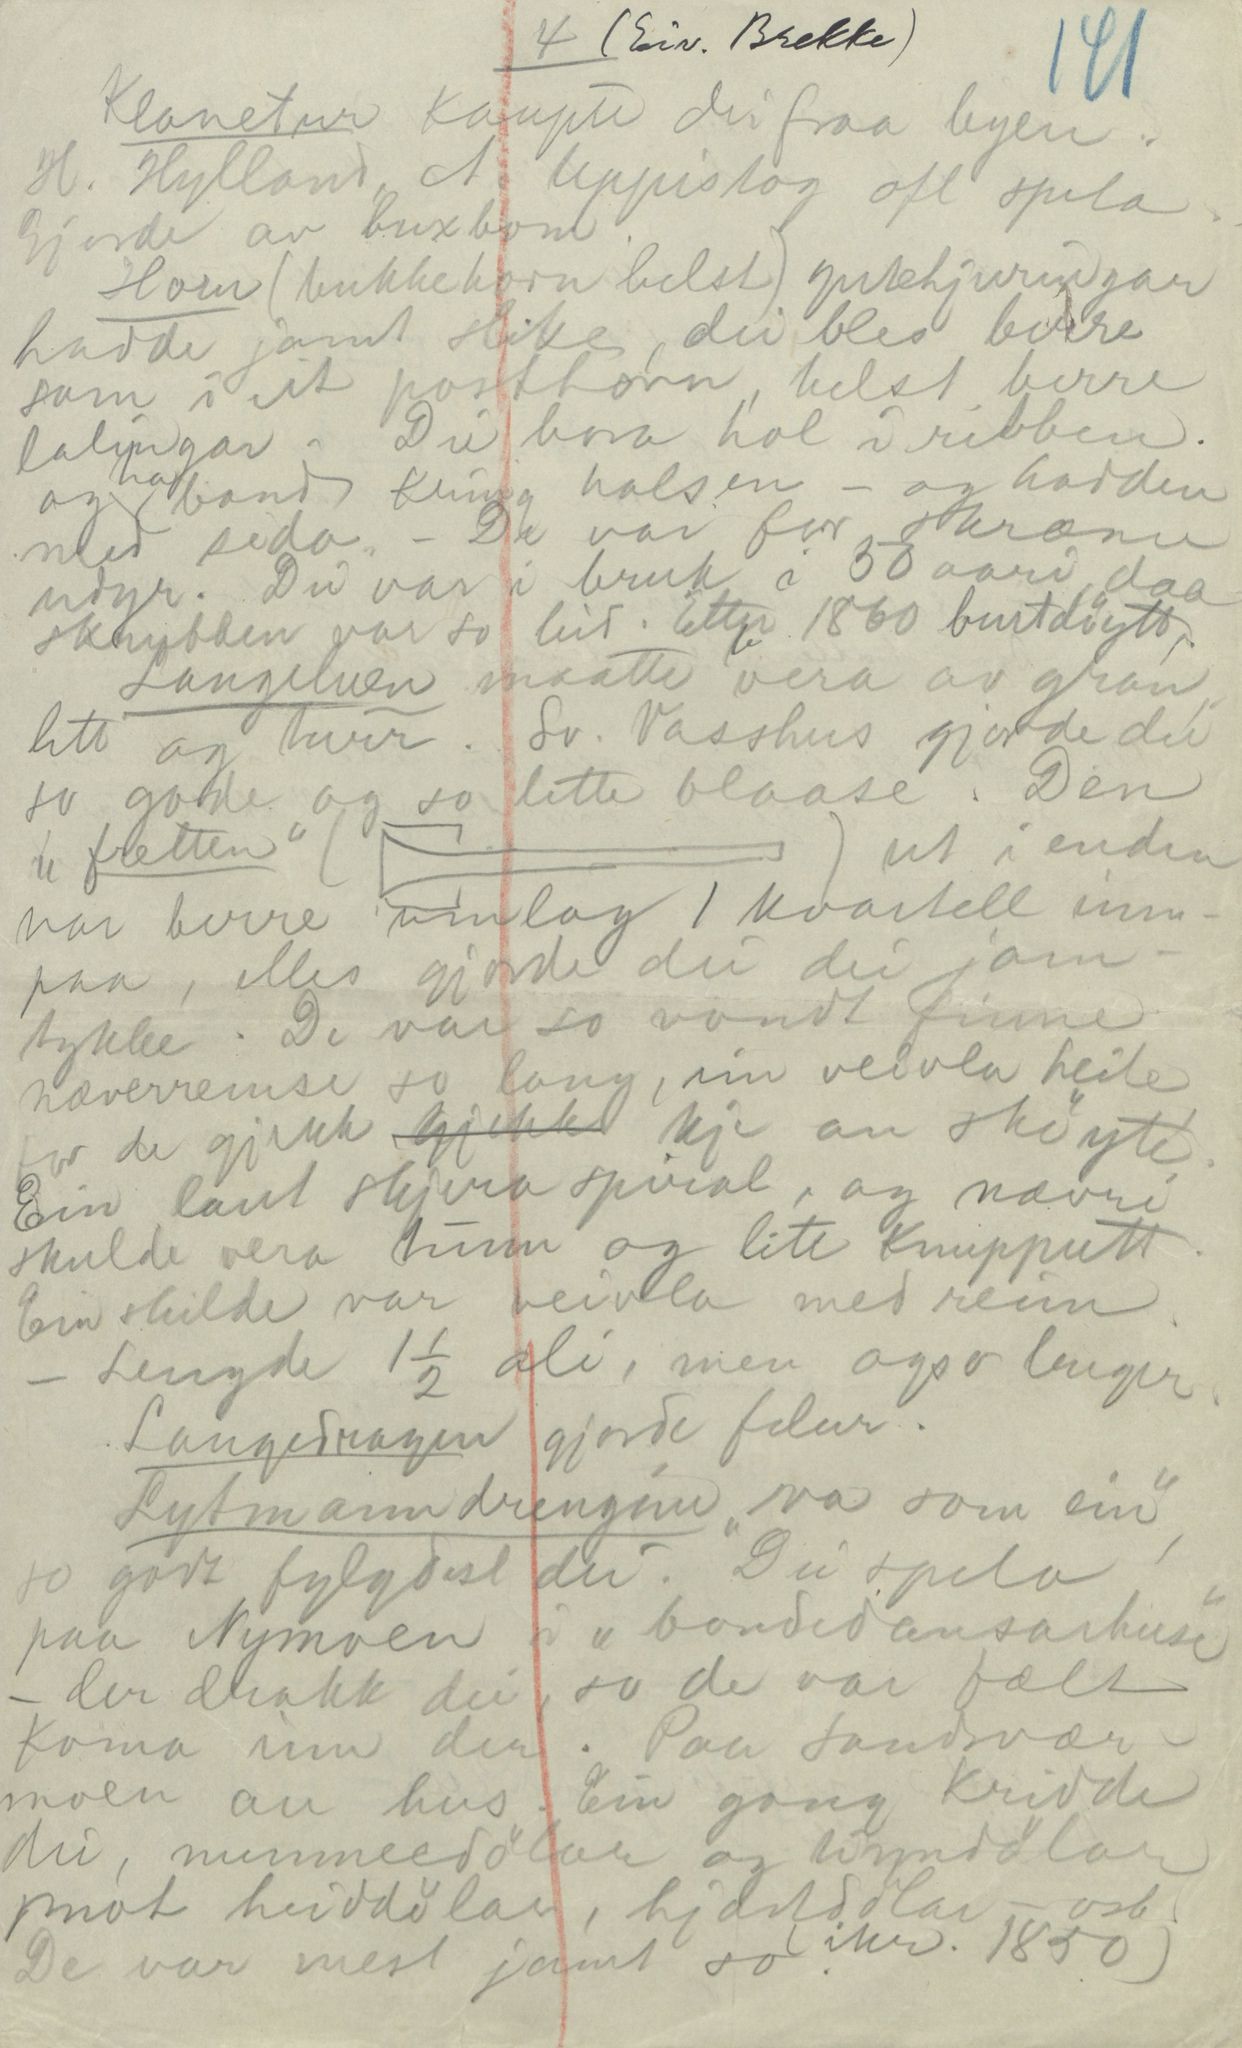 4 (Eiv. Brekke)
141
Klanetur kaupte dei fraa byen.
H. Hylland, A. Uppistog ofl spela.
Gjorde av buxbom.
Horn (bukkehorn helst) gutehjuringar
hadde jamt slike, dei bles berre
som i eit posthorn, helst berre
lalingar. Dei bora hol i ribben.
og har band kring halsen – og hadden
med sida. – De var for skræme
udyr. Dei var i bruk i 50 aari, daa
skrubben var so leid. Etter 1860 burtdöytt.
Langeluren maatte vera av gran,
lett og turr. Sv. Vasshus gjorde dei
so gode og so lette blaase. Den
"fretten" ( ) ut i enden
var berre umlag 1 kvartell inn-
paa, elles gjorde dei dei jam-
tykke. De var so vondt finne
næverremse so lang, ein veivla heile
for de gjekk kje an sköyte.
Ein laut skjera spiral, og nævri
skulde vera tunn og lite knupputt.
Ein skilde var veivla med reim.
– Lengde 1 1/2 ali, men ogso lenger.
Langedragen gjorde felur.
Lytmanndrengine "va som ein",
so godt fylgdest dei. Dei spela
paa Nymoen i "bondedansarhuse"
– der drakk dei, so de var fælt
koma inn der. Paa Sandsvær-
moen au hus. Ein gong kridde
dei, nummedölar og tinndölar
mot heiddölar, hjartdölar – osb.
De var mest jamt so (ikr. 1850)